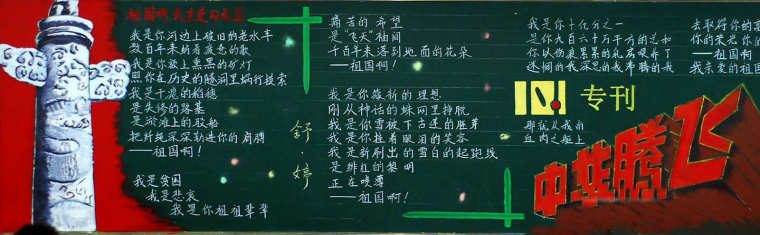 祖国啊我亲爱的祖国
我是你河边上破旧的老水车
数百年来纺着疲惫的歌
我是你额上熏黑的矿灯
照你在历史的隧洞里蜗行摸索
我是干瘪的稻穗
是失修的路基
是淤滩上的驳船
把纤绳深深勒进你的肩膊
——祖国啊！
我是贫困
我是悲哀
我是你祖祖辈辈
痛苦的希望
是“飞天”袖间
千百年来落到地面的花朵
——祖国啊！
我是你簇新的理想
刚从神话的蛛网里挣脱
我是你雪被下古莲的胚芽
我是你挂着眼泪的笑窝
我是新刷出的雪白的起跑线
是绯红的黎明
正在喷薄
——祖国啊！
舒婷
我是你十亿分之一
是你九百六十万平方的总和
你以伤痕累累的乳房喂养了
迷惘的我深思的我沸腾的我
那就从我的
血肉之躯上
去取得你的
你的荣光你的
——祖国啊
我亲爱的祖国
10.1专刊
中华腾飞